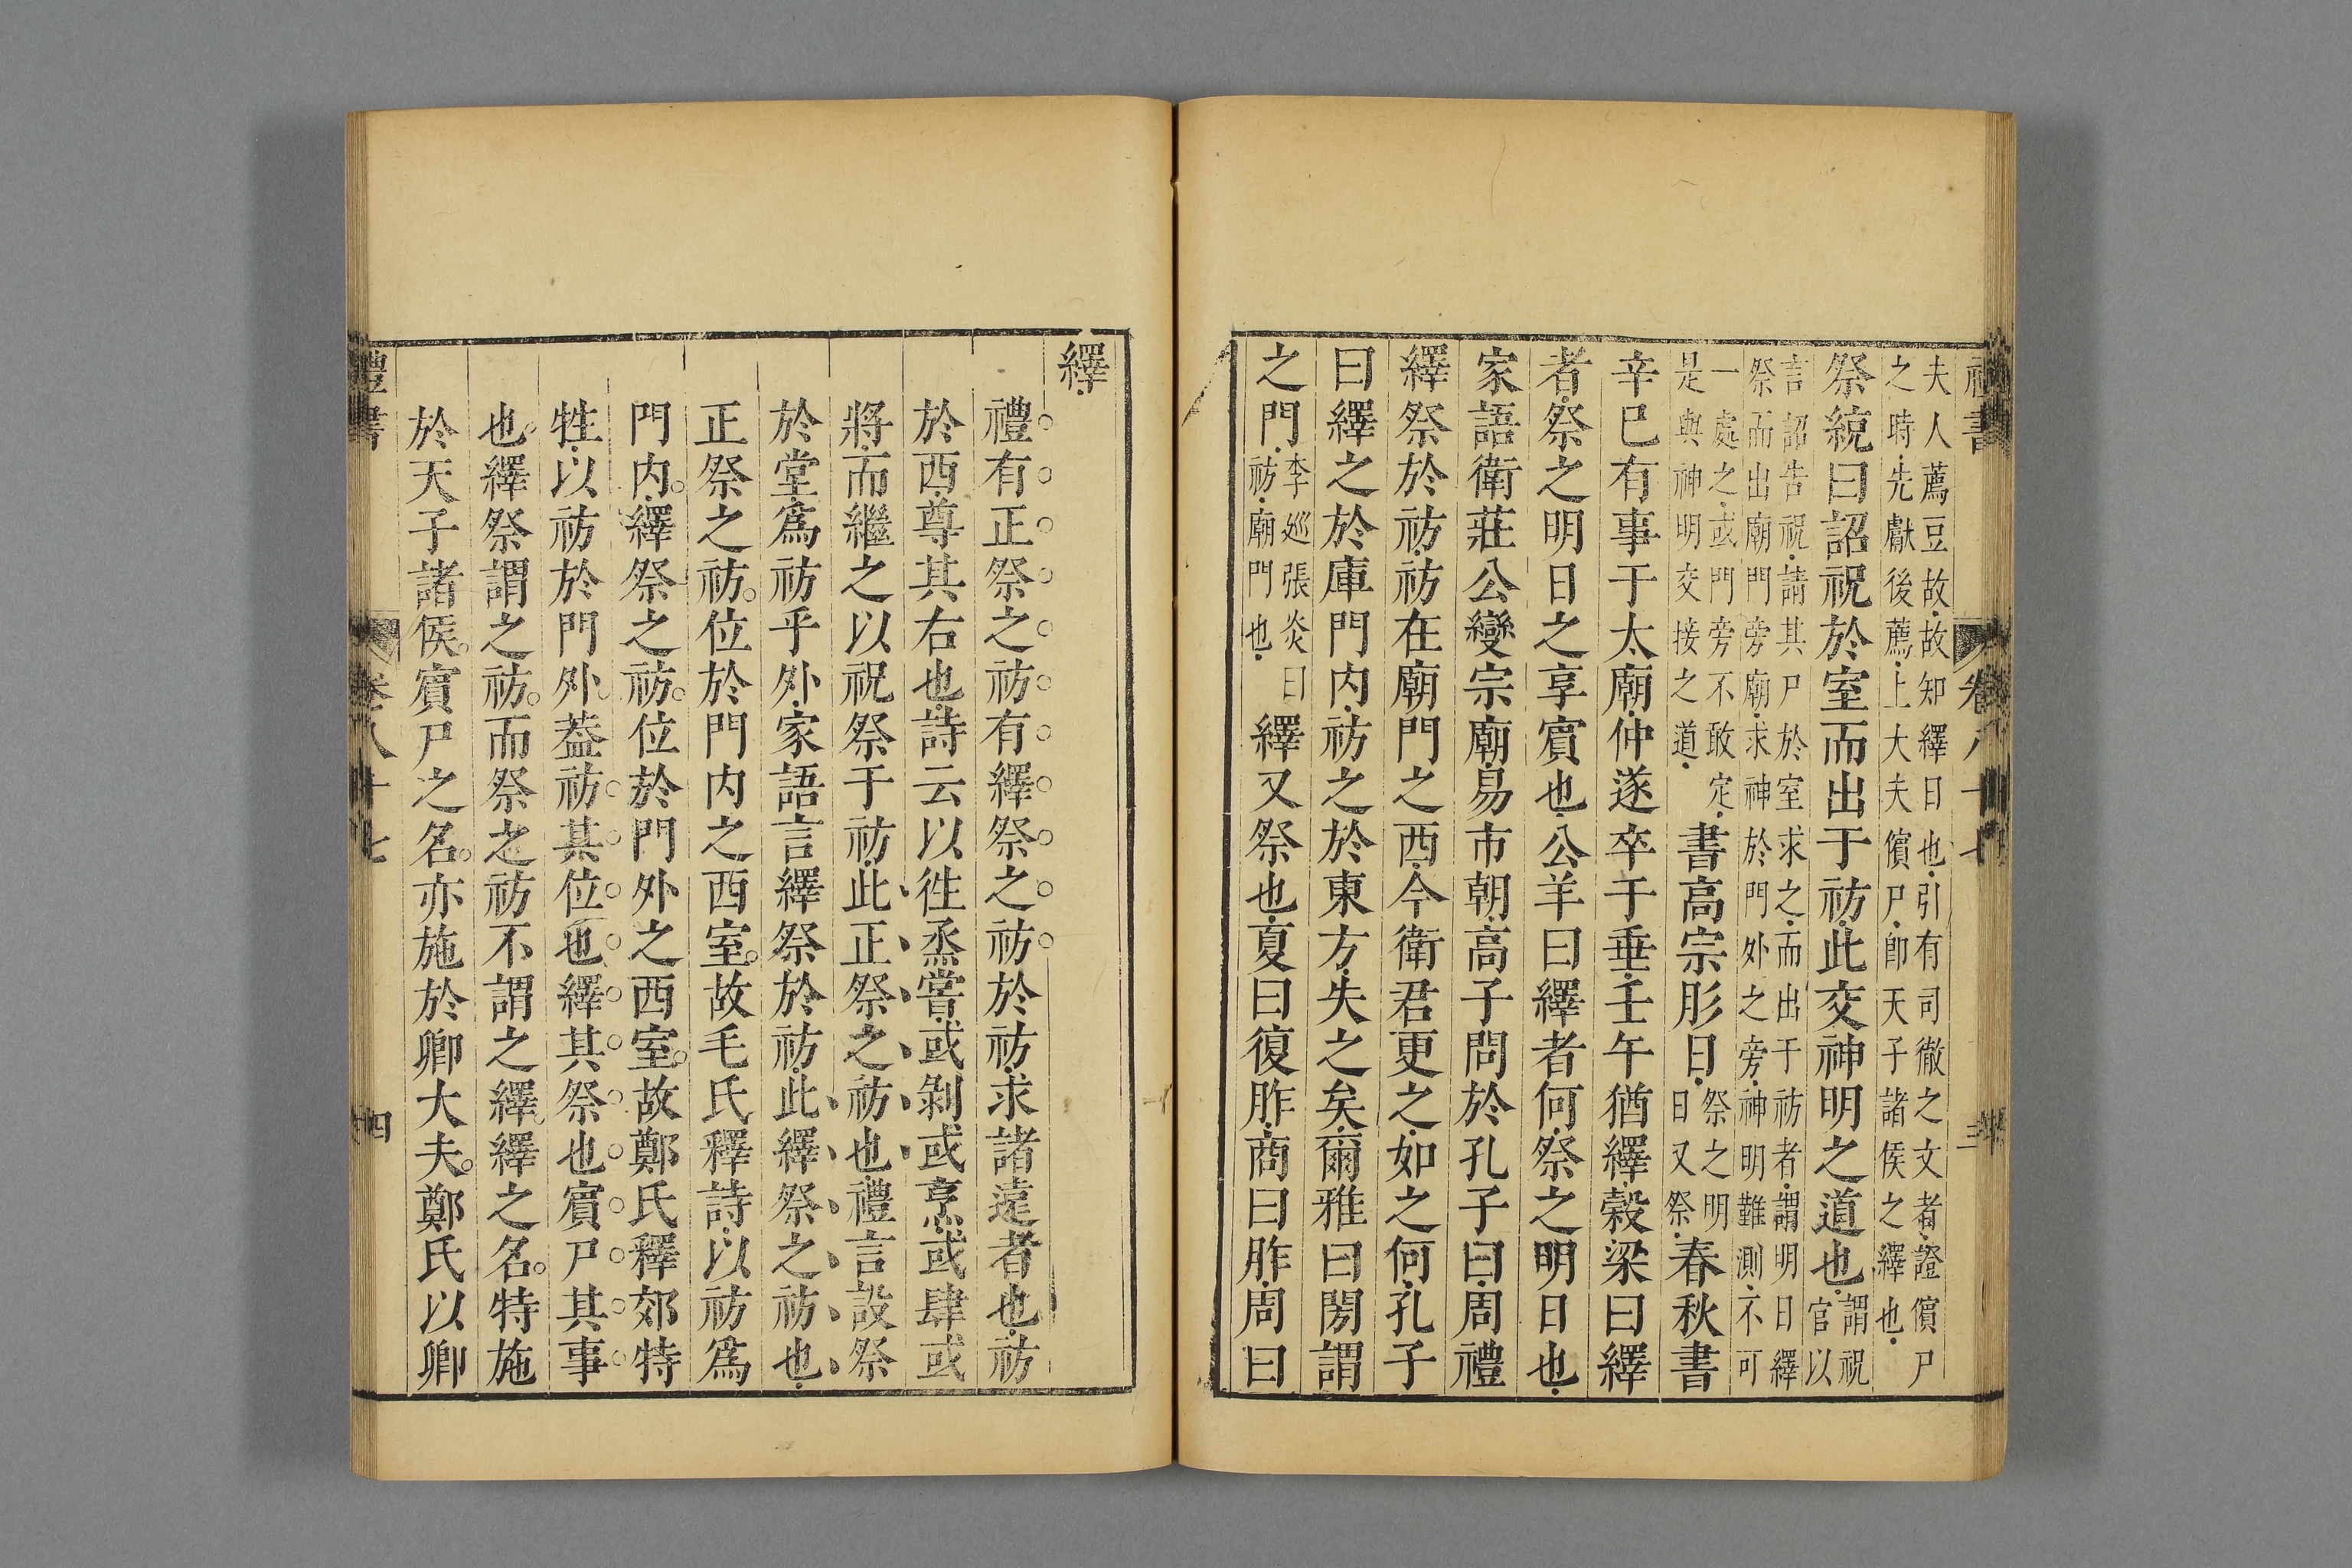 夫人薦豆故故知繹日也引有司徹之文者證儐尸
之時先獻後薦上大夫儐尸卽天子諸侯之繹也
祭統曰詔祝於室而出于祊此交神明之道也謂祝
官以
言詔告祝請其尸於室求之而出于祊者謂明日繹
祭而出廟門旁廟求神於門外之旁神明難測不可
一處之或門旁不敢定
是與神明交接之道書高宗肜日祭之明
日又祭春秋書
辛巳有事于太廟仲遂卒于垂壬午猶繹穀梁曰繹
者祭之明日之享賓也公羊曰繹者何祭之明日也
家語衛莊公變宗廟易市朝高子問於孔子曰周禮
繹祭於祊祊在廟門之西今衛君更之如之何孔子
曰繹之於庫門內祊之於東方失之矣爾雅曰閍謂
之門李巡張炎曰
祊廟門也繹又祭也夏曰復胙商曰胙周曰
繹
禮有正祭之祊有繹祭之祊於祊求諸遠者也祊
於西尊其右也詩云以徃烝嘗或剝或亨或肆或
將而繼之以祝祭于祊此正祭之祊也禮言設祭
於堂爲祊乎外家語言繹祭於祊此繹祭之祊也
正祭之祊位於門內之西室故毛氏釋詩以祊爲
門內繹祭之祊位於門外之西室故鄭氏釋郊特
牲以祊於門外葢祊其位也繹其祭也賓尸其事
也繹祭謂之祊而祭之祊不謂之繹繹之名特施
於天子諸侯賓尸之名亦施於卿大夫鄭氏以卿
禮書
卷八十七
四